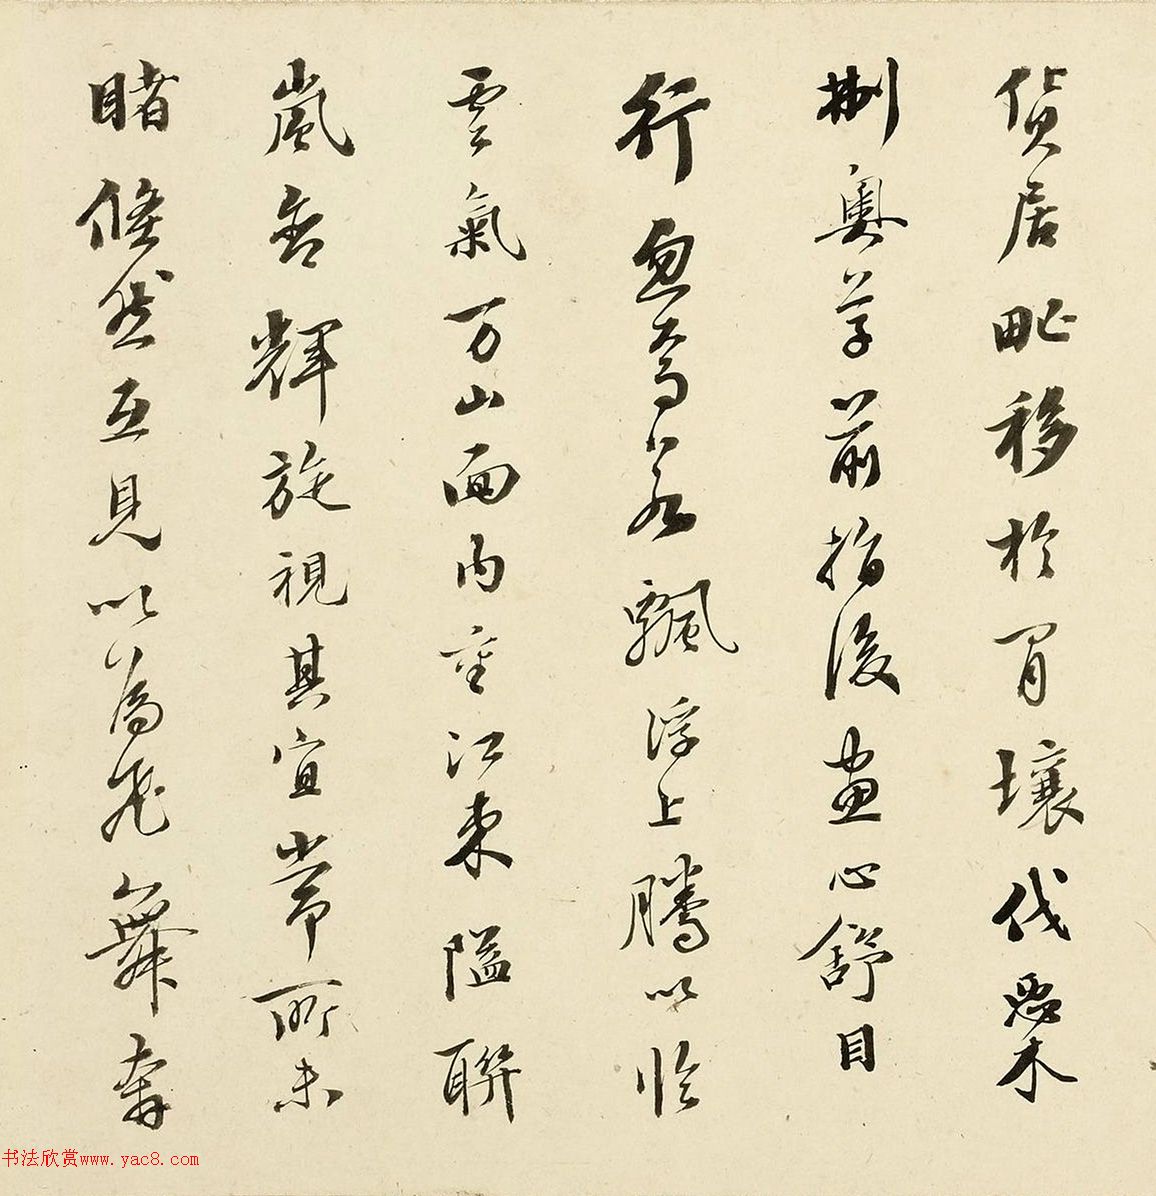 貨居甿移於閒壤伐惡木
刜奧草前指後畫心舒目
行忽焉若飄浮上騰以臨
雲氣万山面內重江束隘聯
嵐含輝旋視其宜常所未
睹倏然互見以為飛舞奔
书法欣赏www.yac8.com